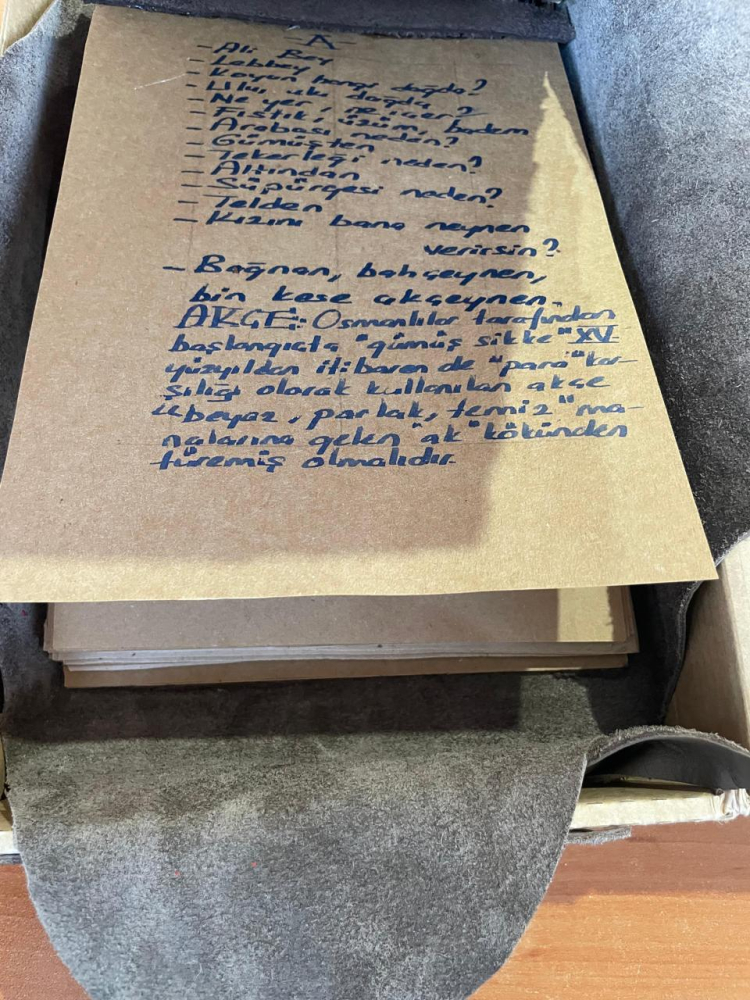 -A-
- Ali Bey
- Lebbey
- Koyun hangi dağda?
- Ulu ulu dağda
- Ne yer, ne içer?
- Fıstık, üzüm, badem
- Arabası neden?
- Gümüşten
- Tekerleği neden?
- Altından
- Süpürgesi neden?
- Telden
- Kızını bana neynen
verirsin?
- Bağnan, bahçeynen,
bin kese akçeynen.
AKÇE: Osmanlılar tarafından
başlangıçta "gümüş sikke" XV.
yüzyıldan itibaren de "para" kar-
şılığı olarak kullanılan akçe
"beyaz, parlak, temiz" ma-
nalarına gelen "ak" kökünden
türemiş olmalıdır.